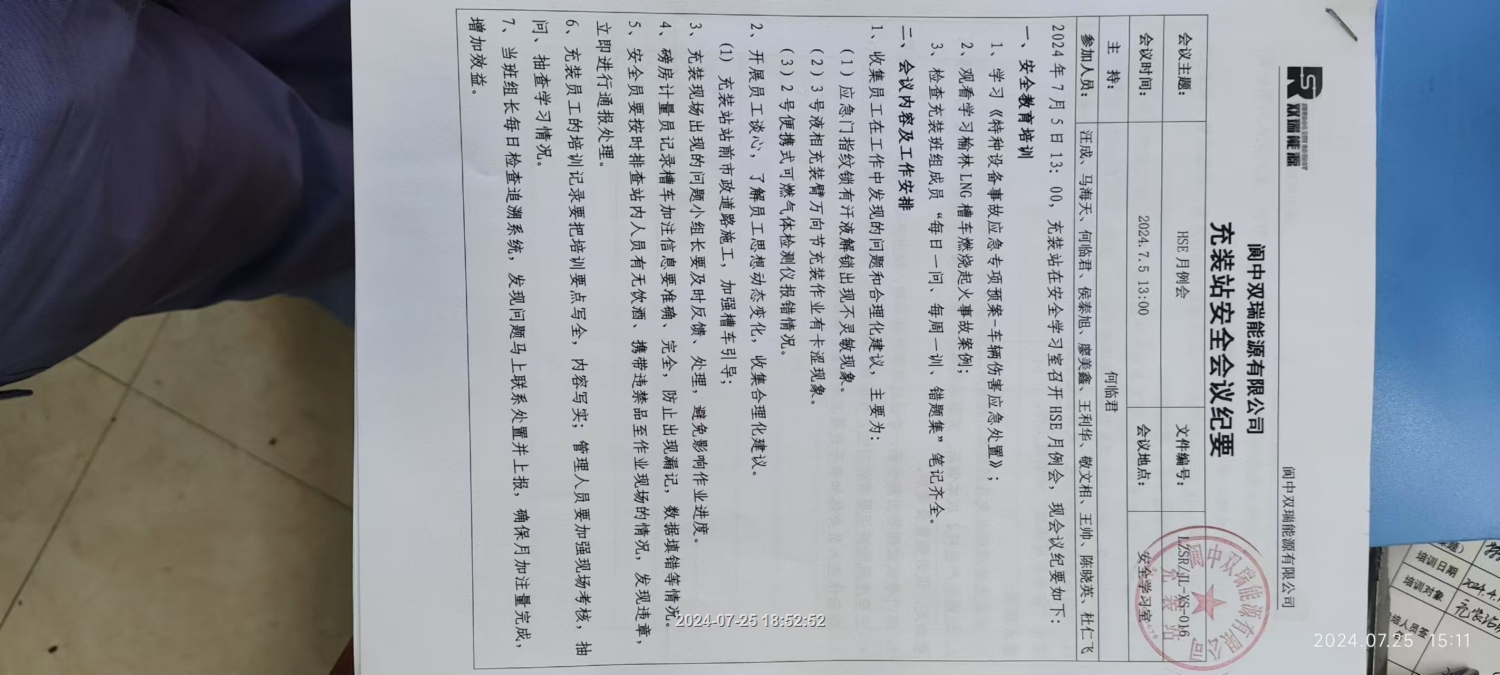 双瑞能源
阆中双瑞能源有限公司
阆中双瑞能源有限公司
充装站安全会议纪要
会议主题： HSE 月例会 文件编号： LZSR/JL-XS-016
会议时间： 2024.7.5 13:00 会议地点： 安全学习室
主 持： 何临君
参加人员： 汪成、马海天、何临君、侯泰旭、廖美鑫、王利华、敬文相、王帅、陈晓英、杜仁飞
2024 年 7 月 5 日 13：00，充装站在安全学习室召开 HSE 月例会，现会议纪要如下：
一、安全教育培训
1、学习《特种设备事故应急专项预案-车辆伤害应急处置》；
2、观看学习榆林 LNG 槽车燃烧起火事故案例；
3、检查充装班组成员“每日一问、每周一训、错题集”笔记齐全。
二、会议内容及工作安排
1、收集员工在工作中发现的问题和合理化建议，主要为：
（1）应急门指纹锁有汗液解锁出现不灵敏现象。
（2）3 号液相充装臂万向节充装作业有卡涩现象。
（3）2 号便携式可燃气体检测仪报错情况。
2、开展员工谈心，了解员工思想动态变化，收集合理化建议。
（1）充装站站前市政道路施工，加强槽车引导；
3、充装现场出现的问题小组长要及时反馈、处理，避免影响作业进度。
4、磅房计量员记录槽车加注信息要准确、完全，防止出现漏记，数据填错等情况。
5、安全员要按时排查站内人员有无饮酒、携带违禁品至作业现场的情况，发现违章，
立即进行通报处理。
6、充装员工的培训记录要把培训要点写全，内容写实；管理人员要加强现场考核，抽
问、抽查学习情况。
7、当班组长每日检查追溯系统，发现问题马上联系处置并上报，确保月加注量完成，
增加效益。
阆中双瑞能源有限公司
充装站
培训日期
培训对象
2024-07-25 18:52:52
2024.07.25 15:11